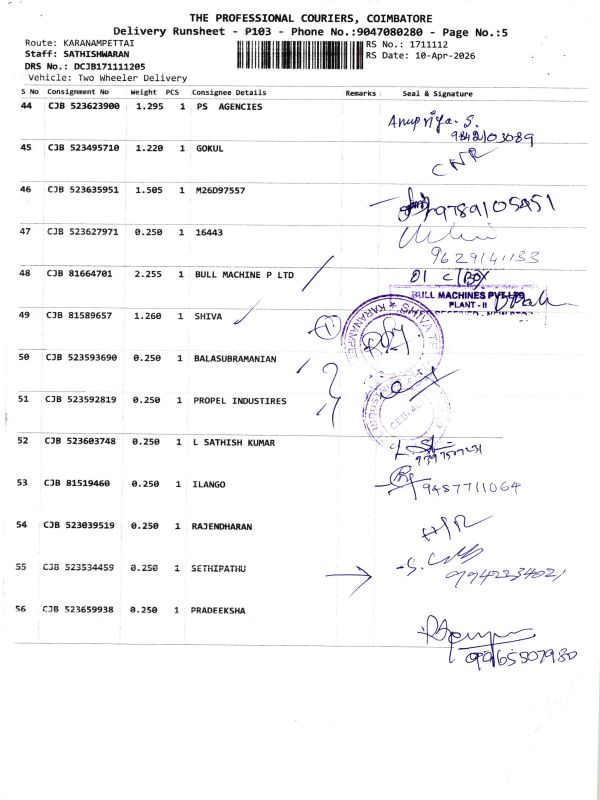 THE PROFESSIONAL COURIERS, COIMBATORE
Delivery Runsheet - P103 - Phone No.:9047080280 - Page No.:5
Route: KARANAMPETTAI RS No.: 1711112
Staff: SATHISHWARAN RS Date: 10-Apr-2026
DRS No.: DCJB171111205
Vehicle: Two Wheeler Delivery
S No Consignment No Weight PCS Consignee Details Remarks Seal & Signature
44 CJB 523623900 1.295 1 PS AGENCIES
Anupriya. S.
9842103089
45 CJB 523495710 1.220 1 GOKUL
46 CJB 523635951 1.505 1 M26D97557
9789105451
47 CJB 523627971 0.250 1 16443
9629141133
48 CJB 81664701 2.255 1 BULL MACHINE P LTD
01 C/BOX
BULL MACHINES PVT LTD
PLANT - II
49 CJB 81589657 1.260 1 SHIVA
50 CJB 523593690 0.250 1 BALASUBRAMANIAN
51 CJB 523592819 0.250 1 PROPEL INDUSTIRES
52 CJB 523603748 0.250 1 L SATHISH KUMAR
53 CJB 81519460 0.250 1 ILANGO
9487711064
54 CJB 523039519 0.250 1 RAJENDHARAN
55 CJB 523534459 0.250 1 SETHIPATHU
9942234021
56 CJB 523659938 0.250 1 PRADEEKSHA
9965507980